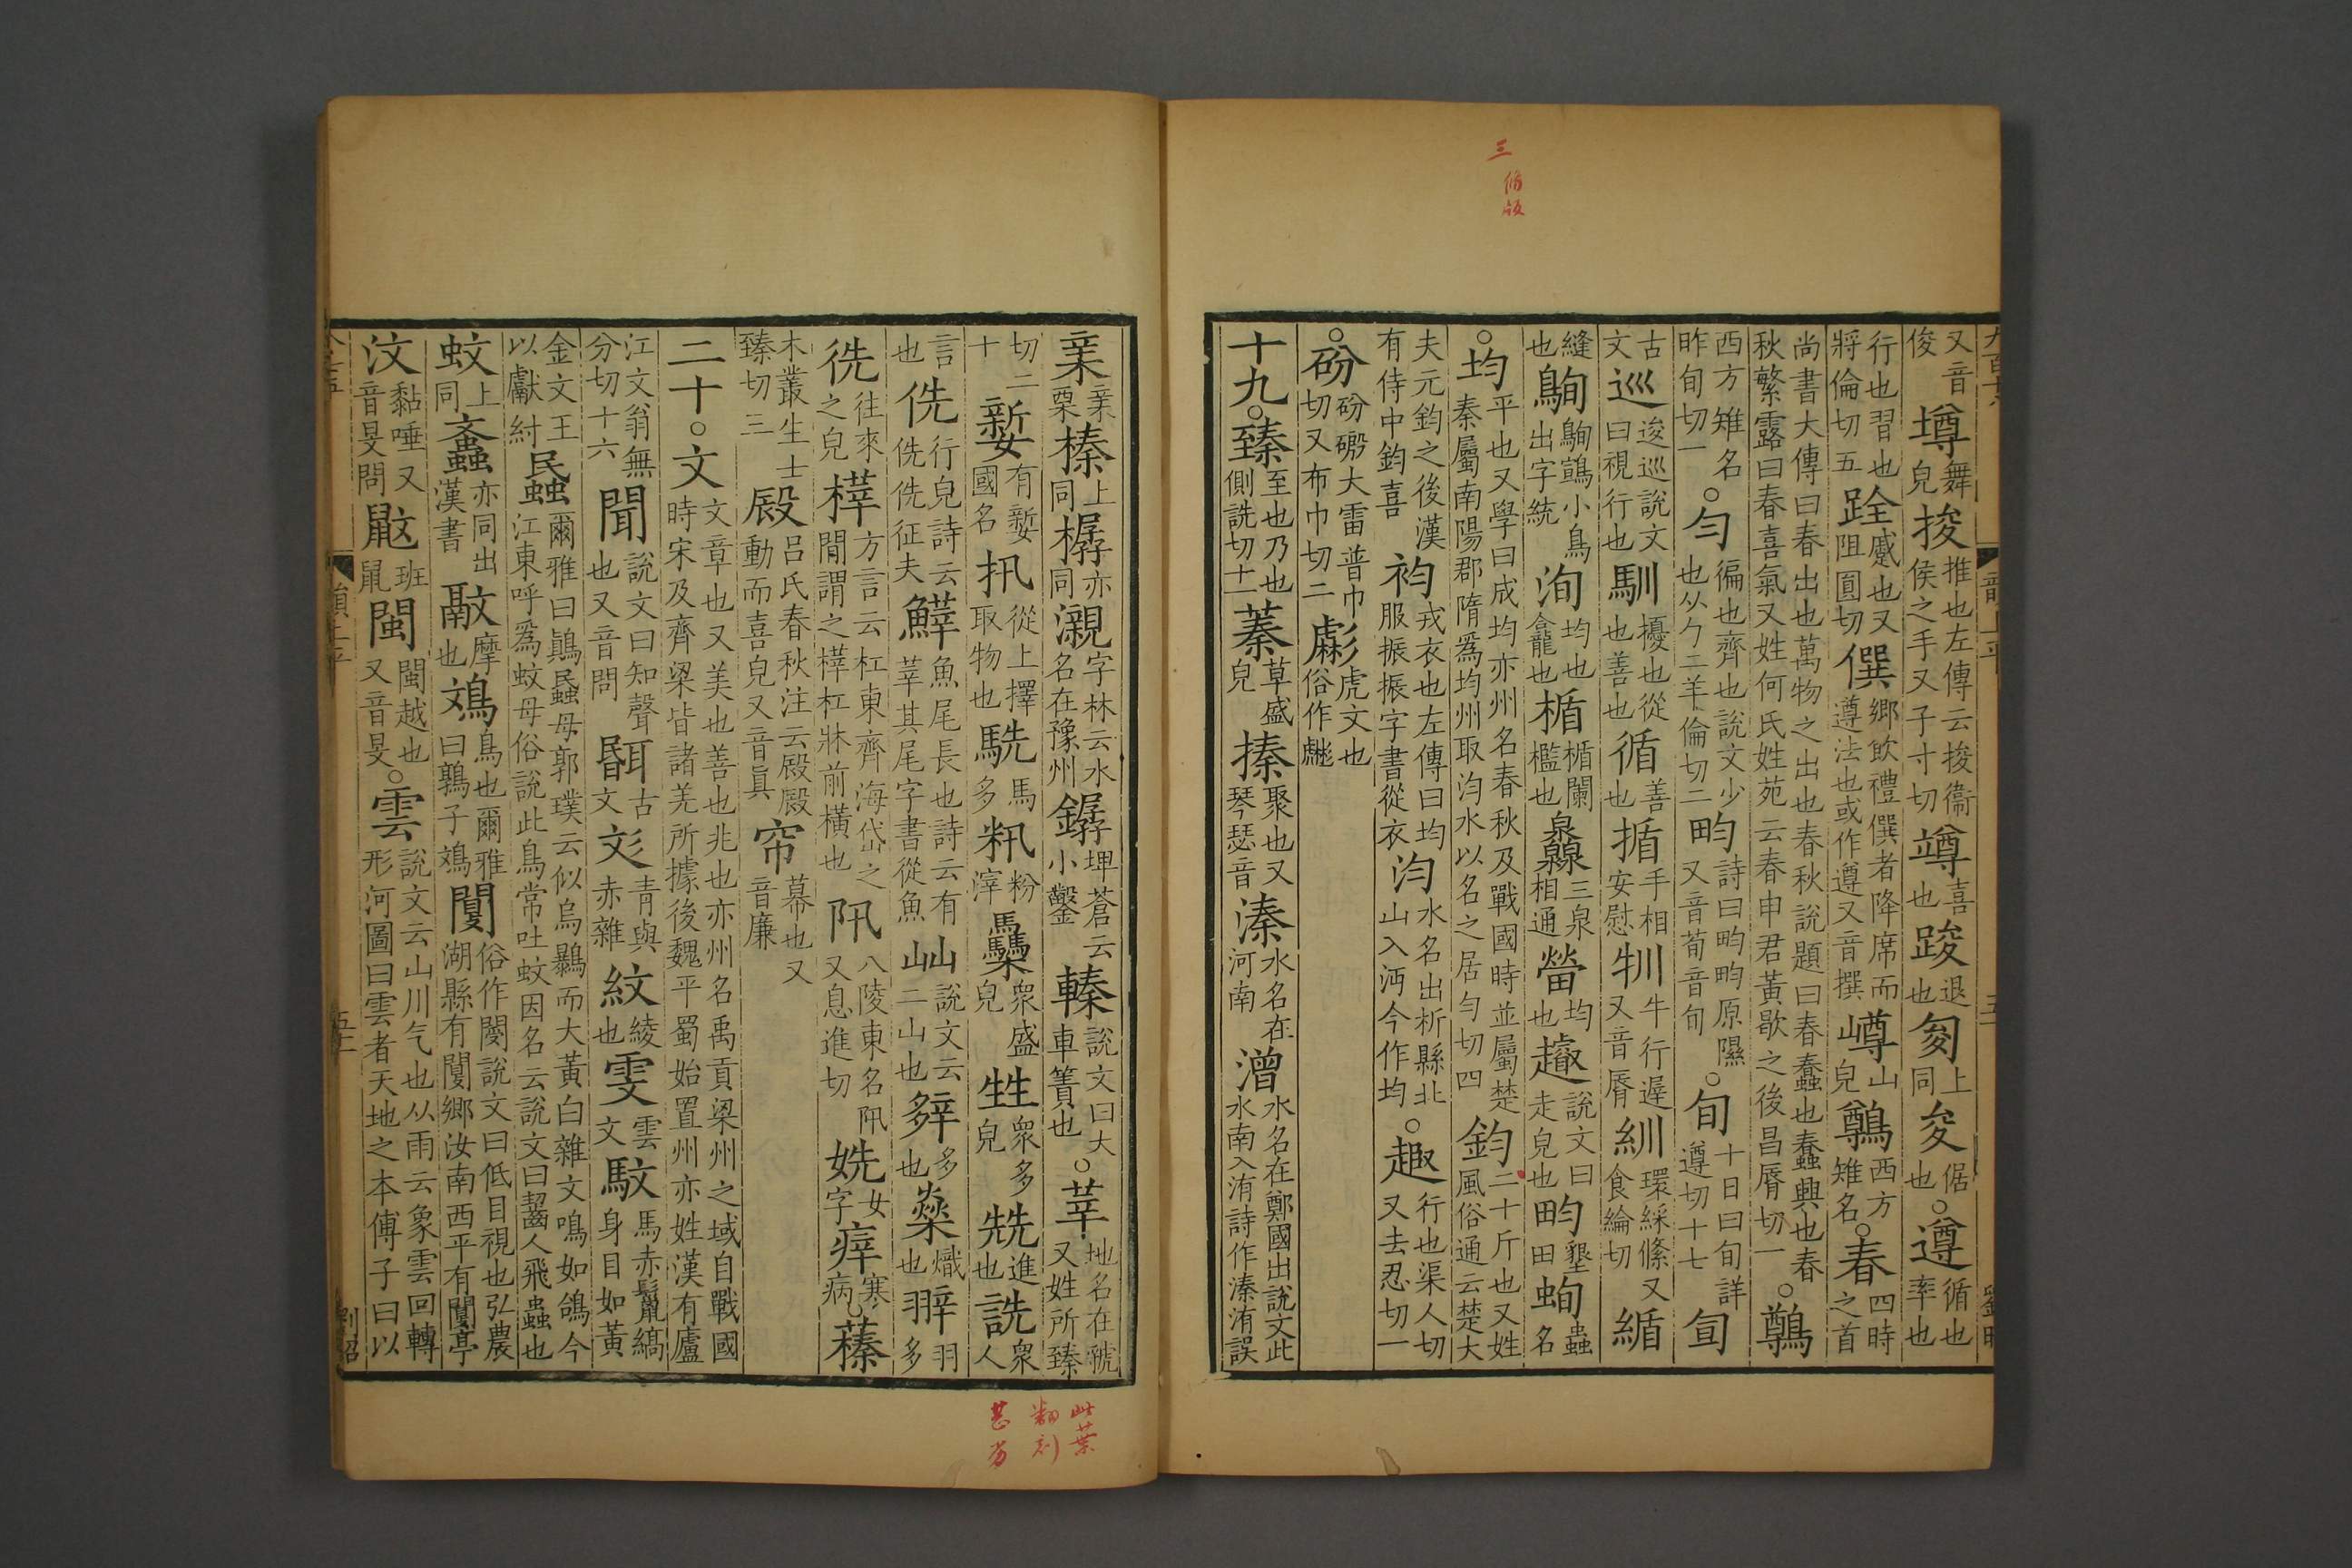 三脩版
又音俊墫舞皃捘推也左傳云捘衞侯之手又子寸切竴喜也踆退也㕙上同夋倨也○遵循也率也
行也習也將倫切五跧蹙也又阻圓切僎鄉飲禮僎者降席而遵法也或作遵又音撰嶟山皃鷷西方雉名○春四時之首
尚書大傳曰春出也萬物之出也春秋說題曰春蠢也蠢興也春秋繁露曰春喜氣又姓何氏姓苑云春申君黃歇之後昌脣切一○鷷
西方雉名昨旬切一○勻徧也齊也說文少也从勹二羊倫切二畇詩曰畇畇原隰又音荀音旬○旬十日曰旬詳遵切十七旬
古文巡逡巡說文曰視行也馴擾也從也善也循善也揗手相安慰㸪牛行遲又音脣紃環綵絛又食綸切緧
縫也鶞小鳥出字統洵均也龕也楯楯闌檻也灥三泉相通䇯均也趣說文曰走皃也畇墾田蚼蟲名
○均平也又學曰成均亦州名春秋及戰國時並屬楚秦屬南陽郡隋爲均州取汮水以名之居勻切四鈞二十斤也又姓風俗通云楚大
夫元鈞之後漢有侍中鈞喜袀戎衣也左傳曰均服振振字書從衣汮水名出析縣北山入沔今作均○趣行也渠人切又去忍切一
○砏砏磤大雷普巾切又布巾切二彪虎文也俗作虨
十九○臻至也乃也側詵切十一蓁草盛皃搸聚也又琴瑟音溱水名在河南潧水名在鄭國出說文此水南入洧詩作溱洧誤
亲亲栗榛上同樼亦同瀙字林云水名在豫州鎼埤蒼云小鑿轃說文曰大車簀也○莘地名在虢又姓所臻
切二十㜪有㜪國名扟從上擇取物也駪馬多籸粉滓䮪衆盛皃甡衆多皃兟進也詵衆人
言也侁行皃詩云侁侁征夫鯶魚尾長也詩云有莘其尾字書從魚屾說文云二山也㚔多也燊熾也𦐊羽多
𢓠往來之皃㭴方言云杠東齊海岱之閒謂之㭴杠牀前橫也阠八陵東名阠又息進切姺女字㾕寒病○蓁
木叢生士臻切三㲀呂氏春秋注云㲀㲀動而喜皃又音眞帘幕也又音廉
二十○文文章也又美也善也兆也亦州名禹貢梁州之域自戰國時宋及齊梁皆諸羌所據後魏平蜀始置州亦姓漢有廬
江文翁無分切十六聞說文曰知聲也又音問䎽古文彣青與赤雜紋綾也雯雲文馼馬赤鬣縞身目如黃
金文王以獻紂蟁爾雅曰鷏蟁母郭璞云似烏鷃而大黃白雜文鳴如鴿今江東呼爲蚊母俗說此鳥常吐蚊因名云說文曰齧人飛蟲也
蚊上同䘇亦同出漢書𣀴摩也鳼鳥也爾雅曰鶉子鳼闅俗作閺說文曰低目視也弘農湖縣有闅鄉汝南西平有闅亭
汶黏唾又音旻問鼤班鼠閩閩越也又音旻○雲說文云山川气也从雨云象雲回轉形河圖曰雲者天地之本傅子曰以
此葉
翻刻
甚劣